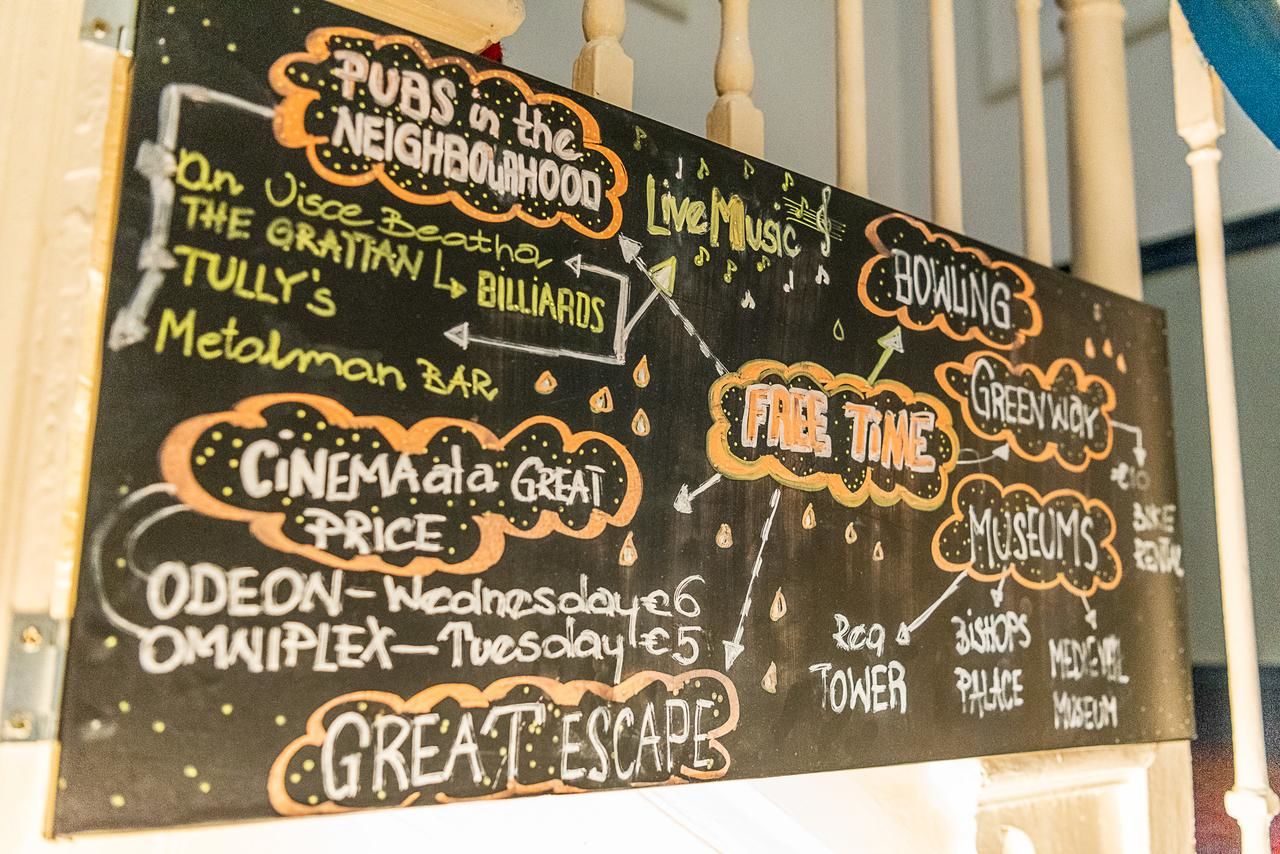 PUBS in the
NEIGHBOURHOOD
An Uisce Beatha
THE GRATTAN
BILLIARDS
TULLY's
Metalman BAR
Live Music
BOWLING
FREE TIME
GREENWAY
€10
BIKE
RENTAL
MUSEUMS
Reg
TOWER
BISHOPS
PALACE
MEDIEVAL
MUSEUM
CINEMA at a GREAT
PRICE
ODEON - Wednesday €6
OMNIPLEX - Tuesday €5
GREAT ESCAPE